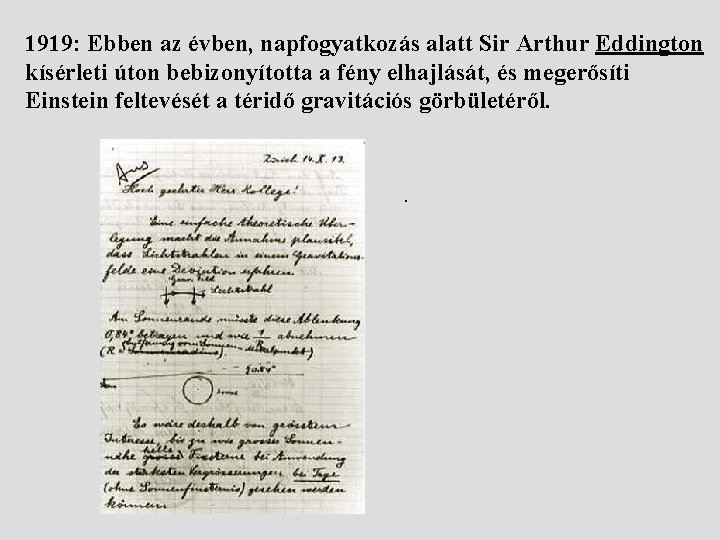 1919: Ebben az évben, napfogyatkozás alatt Sir Arthur Eddington
kísérleti úton bebizonyította a fény elhajlását, és megerősíti
Einstein feltevését a téridő gravitációs görbületéről.
Zürich. 14. X. 13.
Hoch geehrter Herr Kollege!
.
Eine einfache theoretische Über-
legung macht die Annahme plausibel,
dass Lichtstrahlen in einem Gravitations-
felde eine Deviation erfahren.
Grav. Feld
Lichtstrahl
Am Sonnenrande müsste diese Ablenkung
0,84" betragen und wie 1/R abnehmen
(R =
0.84"
Sonne
Es wäre deshalb von grösstem
Interesse, bis zu wie grosser Sonnen-
nähe helle Fixsterne bei Anwendung
der stärksten Vergrösserungen bei Tage
(ohne Sonnenfinsternis) gesehen werden
können